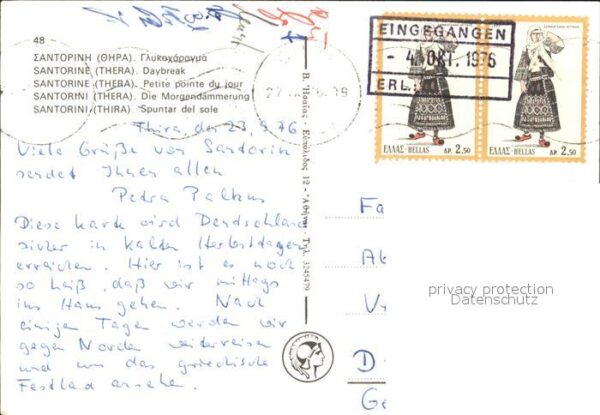 48
ΣΑΝΤΟΡΙΝΗ (ΘΗΡΑ). Γλυκοχάραγμα
SANTORINE (THERA). Daybreak
SANTORINE (THERA). Petite pointe du jour
SANTORINI (THERA). Die Morgendämmerung
SANTORINI (THIRA). Spuntar del sole
Thira, den 23.9.76
Viele Grüße von Santorin
sendet Ihnen allen
Petra
Diese Karte wird Deutschland
sicher in kalten Herbsttagen
erreichen. Hier ist es noch
so heiß, daß wir mittags
ins Haus gehen. Nach
einigen Tagen werden wir
gegen Norden weiterreisen
und uns das griechische
Festland ansehen.
12 - Ἀθῆναι - Τηλ. 3245479
EINGEGANGEN
- 4. OKT. 1976
ERL.
ΕΛΛΑΣ-HELLAS ΔΡ. 2,50
ΕΛΛΑΣ-HELLAS ΔΡ. 2,50
Fa
D
privacy protection
Datenschutz